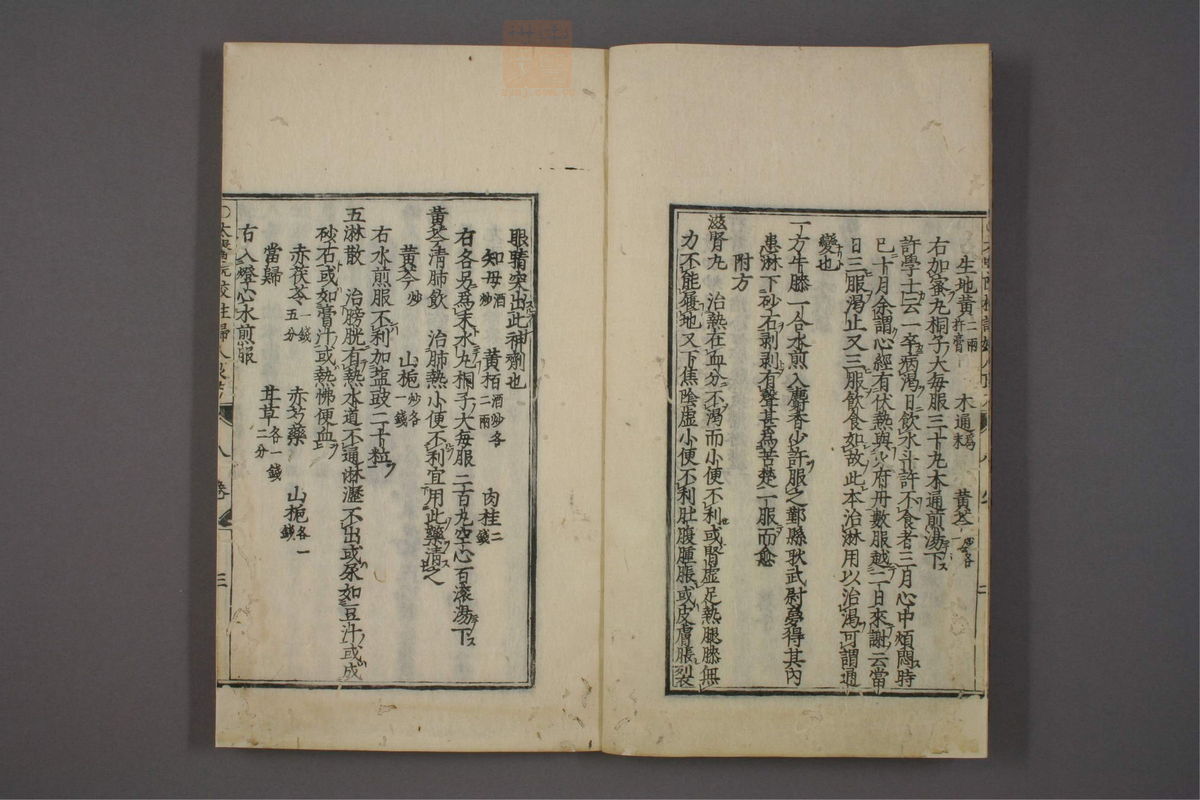 生地黃二兩許膏 木通爲末 黃芩各一
右加蜜丸桐子大每服三十九木通煎湯下ス
許學士云一卒病渴日飲水斗許不食者三月心中煩悶時
已十月余謂心經有伏熱與少府丹數服越二日來謝云當
日三服渴止又三服飲食如故此本治淋用以治渴可謂通
變也
一方牛膝一合水煎入麝香少許服之鄞縣耿武尉夢得其內
患淋下砂石剥剥有聲甚爲苦楚一服而愈
附方
滋腎丸 治熱在血分不渴而小便不利或腎虛足熱腿膝無
力不能履地又下焦陰虛小便不利肚腹腫脹或皮膚脹裂
眼睛突出此神劑也
知母酒炒 黃栢酒炒各二兩 肉桂二錢
右各另爲末水丸桐子大每服二百丸空心百滾湯下ス
黃芩清肺飲 治肺熱小便不利宜用此藥清之
黃芩炒 山梔炒各一錢
右水煎服不利加塩豉二十粒
五淋散 治膀胱有熱水道不通淋瀝不出或尿如豆汁或成
砂石或如膏汁或熱怫便血
赤茯苓一錢五分 赤芍藥 山梔各一錢
當歸 甘草各一錢二分
右入燈心水煎服